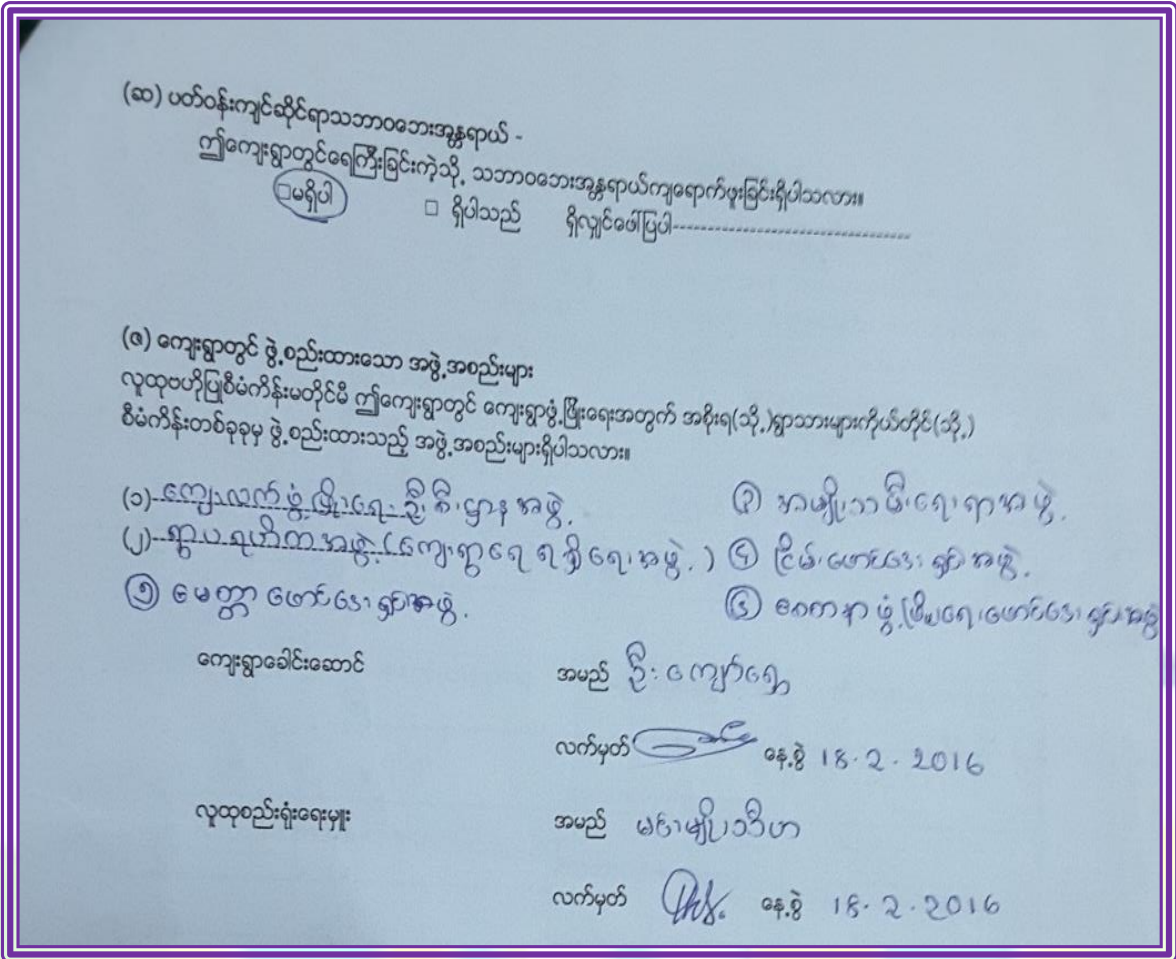 (ဆ) ပတ်ဝန်းကျင်ဆိုင်ရာသဘာဝဘေးအန္တရာယ် -
ဤကျေးရွာတွင်ရေကြီးခြင်းကဲ့သို့ သဘာဝဘေးအန္တရာယ်ကျရောက်ဖူးခြင်းရှိပါသလား။
□မရှိပါ □ ရှိပါသည် ရှိလျှင်ဖေါ်ပြပါ-----------------------------------
(ဇ) ကျေးရွာတွင် ဖွဲ့စည်းထားသော အဖွဲ့အစည်းများ
လူထုဗဟိုပြုစီမံကိန်းမတိုင်မီ ဤကျေးရွာတွင် ကျေးရွာဖွံ့ဖြိုးရေးအတွက် အစိုးရ(သို့)ရွာသားများကိုယ်တိုင်(သို့)
စီမံကိန်းတစ်ခုခုမှ ဖွဲ့စည်းထားသည့် အဖွဲ့အစည်းများရှိပါသလား။
(၁) ကျေးလက်ဖွံ့ဖြိုးရေးဦးစီးဌာနအဖွဲ့ ③ အမျိုးသမီးရေးရာအဖွဲ့
(၂) ရွာပရဟိတအဖွဲ့ (ကျေးရွာရေရရှိရေးအဖွဲ့) ④ ငြိမ်းဖောင်ဒေးရှင်းအဖွဲ့
⑤ မေတ္တာဖောင်ဒေးရှင်းအဖွဲ့ ⑥ စေတနာဖွံ့ဖြိုးရေးဖောင်ဒေးရှင်းအဖွဲ့
ကျေးရွာခေါင်းဆောင် အမည် ဦးကျော်ရွှေ
လက်မှတ် နေ့စွဲ 18.2.2016
လူထုစည်းရုံးရေးမှူး အမည် မင်းမျိုးသီဟ
လက်မှတ် နေ့စွဲ 18.2.2016